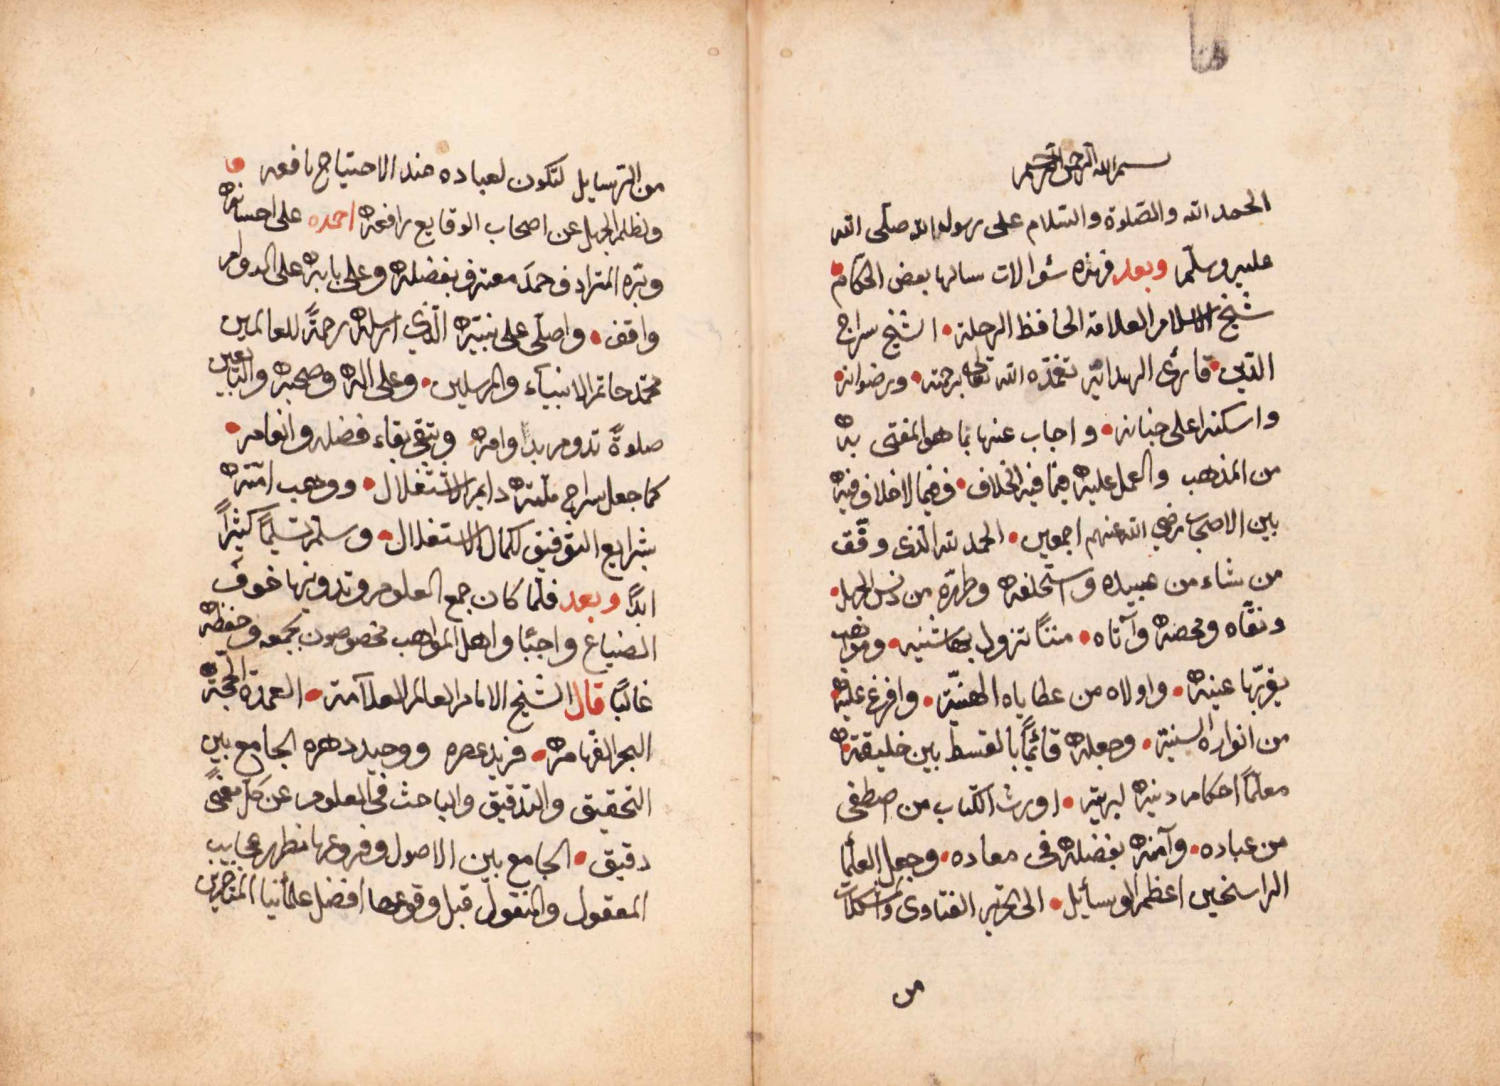 بسم الله الرحمن الرحيم
الحمد لله والصّلوة والسّلام على رسول الله صلّى الله
عليه وسلّم وبعد فهذه سؤالات سالها بعض الحكام
شيخ الاسلام العلامة الحافظ الرحلة الشيخ سراج
الدّين قارئ الهداية تغمّده الله تعالى برحمته ورضوانه
واسكنه اعلى جنانه واجاب عنها بما هو المفتى به
من المذهب والعمل عليه فيما فيه الخلاف وفيما لا خلاف فيه
بين الاصحاب رضي الله عنهم اجمعين الحمد لله الذى وفّق
من شاء من عبيده واستخلفه وطهّره من دنس الجهل
ونقّاه ومحضه وآتاه مننًا تزول بها شنيه ومواهب
يقرّبها عينه واولاه من عطاياه الهنيّة وافرغ عليه
من انواره السنيّة وجعله قائمًا بالقسط بين خليقته
معلمًا احكام دينه لبريّته اورث الكتاب من اصطفى
من عباده وآمنه بفضله فى معاده وجعل العلما
الراسخين اعظم الوسائل الى تحرير الفتاوى والمشكلات
من
من الترسايل لتكون لعباده عند الاحتياج نافعه و
ولظلم الجهل عن اصحاب الوقايع رافعة احمده على احسانه
وبرّه المترادف حمدَ معترف بفضله وعلى بابه على الدوام
واقف واصلّى على نبيّه الّذي ارسله رحمةً للعالمين
محمّد خاتم الانبيآء والمرسلين وعلى اله وصحبه والتابعين
صلوةً تدوم بدوامه وبتقى بقاء فضله وانعامه
كما جعل سراج ملّته دايم الاشتعلال ووهب امّته
بشرايع التوفيق لكمال الاستغلال وسلم تسليمًا كثيرًا
ابدًا وبعد فلمّا كان جمع العلوم وتدوينها خوف
الضياع واجبًا واهل المواهب مخصوصون بجمعه وحفظه
غالبًا قال الشيخ الامام العالم العلآمة العمدة الحجة
البحر الفهامة فريد عصره ووحيد دهره الجامع بين
التحقيق والتدقيق والباحث فى العلوم عن كلّ معنًى
دقيق الجامع بين الاصول وفروعها مظهر عجايب
المعقول والمنقول قبل وقوعها افضل علمائنا المتاخرين